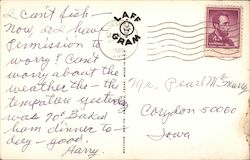 I can't fish -
Now, do I have
Permission to
worry? Can't
worry about the
weather tho - the
tempature yesterday
was 70° Baked
ham dinner to-
day - good.
Harry.
LAFF
GRAM
Mr. Pearl
Corydon 50060
Iowa